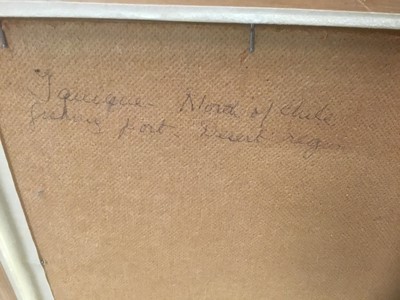 Iquique - North of Chile
fishing Port. Desert region